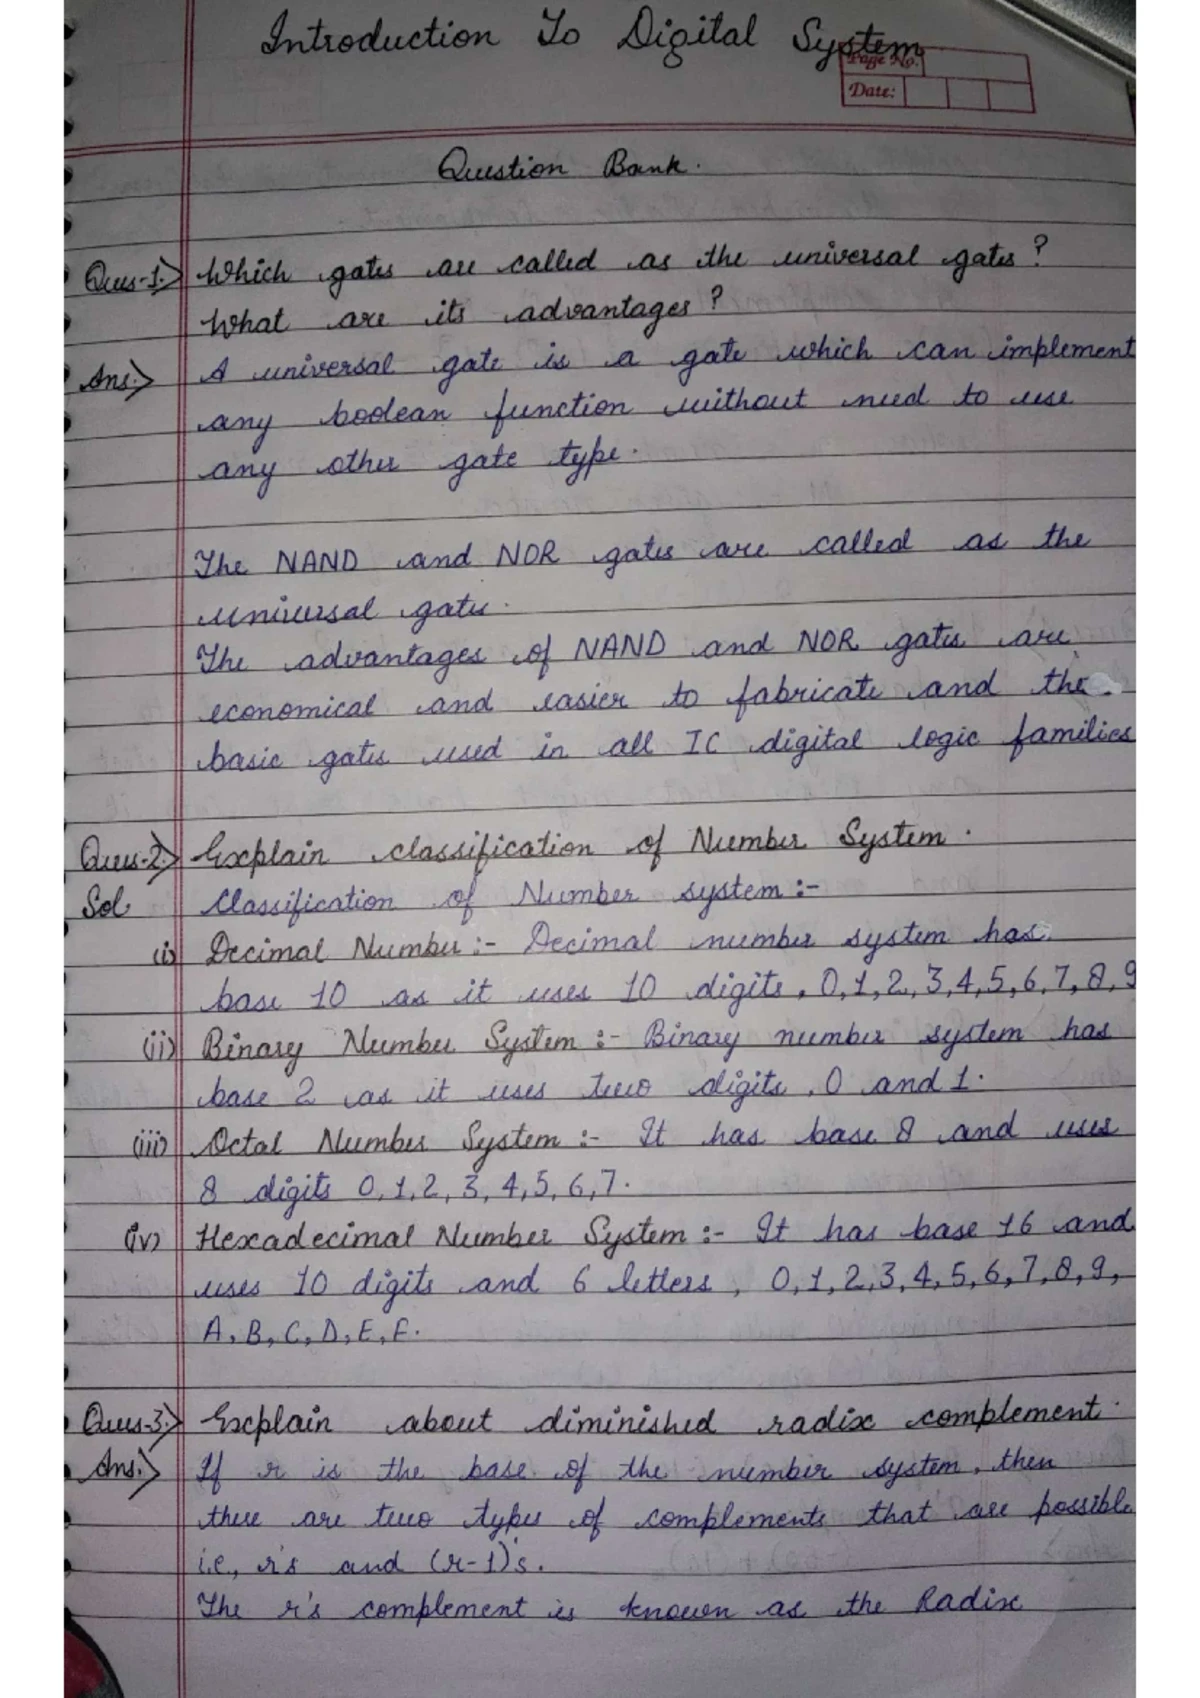 Introduction To Digital System
Page No.
Date:
Question Bank.
Ques-1.> Which gates are called as the universal gates?
What are its advantages?
Ans:> A universal gate is a gate which can implement
any boolean function without need to use
any other gate type.
The NAND and NOR gates are called as the
universal gates.
The advantages of NAND and NOR gates are
economical and easier to fabricate and the
basic gates used in all IC digital logic families
Ques-2.> Explain classification of Number System.
Sol. Classification of Number system :-
(i) Decimal Number :- Decimal number system has
base 10 as it uses 10 digits, 0,1,2,3,4,5,6,7,8,9
(ii) Binary Number System :- Binary number system has
base 2 as it uses two digits, 0 and 1.
(iii) Octal Number System :- It has base 8 and uses
8 digits 0,1,2,3,4,5,6,7.
(iv) Hexadecimal Number System :- It has base 16 and
uses 10 digits and 6 letters, 0,1,2,3,4,5,6,7,8,9,
A,B,C,D,E,F.
Ques-3.> Explain about diminished radix complement.
Ans.> If r is the base of the number system, then
there are two types of complements that are possible
i.e., r's and (r-1)'s.
The r's complement is known as the Radix